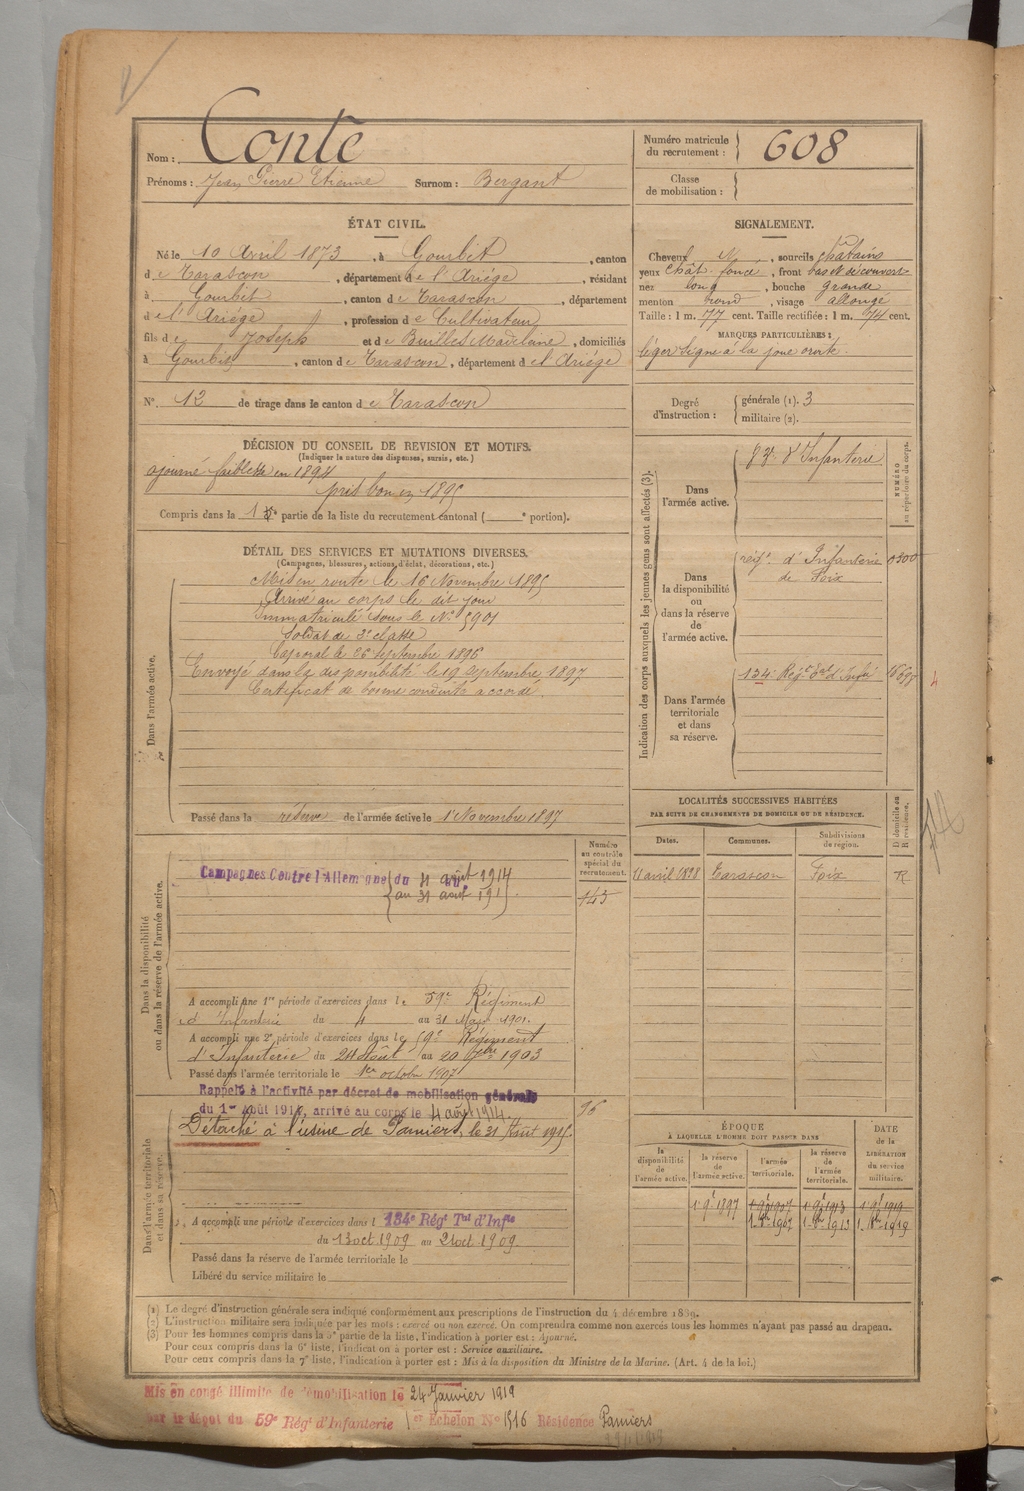 Nom : Conte
Prénoms : Jean Pierre Etienne Surnom : Bergant
Numéro matricule du recrutement : 608
Classe de mobilisation :
ÉTAT CIVIL.
Né le 10 Avril 1873, à Gourbit, canton
de Tarascon, département de l'Ariége, résidant
à Gourbit, canton de Tarascon, département
de l'Ariége, profession de Cultivateur
fils de Joseph et de Builles Madelaine, domiciliés
à Gourbit, canton de Tarascon, département de l'Ariége
N° 12 de tirage dans le canton de Tarascon
SIGNALEMENT.
Cheveux N, sourcils châtains
yeux chât. foncé, front bas et découvert
nez long, bouche grande
menton rond, visage allongé
Taille : 1 m. 77 cent. Taille rectifiée : 1 m. 74 cent.
MARQUES PARTICULIÈRES :
léger signe à la joue droite.
Degré d'instruction : générale (1). 3
militaire (2).
DÉCISION DU CONSEIL DE REVISION ET MOTIFS.
(Indiquer la nature des dispenses, sursis, etc.)
ajourné faiblesse en 1894
pris bon en 1895
Compris dans la 1re partie de la liste du recrutement cantonal ( e portion).
DÉTAIL DES SERVICES ET MUTATIONS DIVERSES.
(Campagnes, blessures, actions d'éclat, décorations, etc.)
Dans l'armée active.
Mis en route le 16 Novembre 1895
Arrivé au corps le dit jour
Immatriculé sous le N° 5901
Soldat de 2e classe
Caporal le 26 Septembre 1896
Envoyé dans la disponibilité le 19 Septembre 1897
Certificat de bonne conduite accordé.
Passé dans la réserve de l'armée active le 1 Novembre 1897
Indication des corps auxquels les jeunes gens sont affectés (3).
NUMÉRO au répertoire du corps.
Dans l'armée active.
83e d'Infanterie
Dans la disponibilité ou dans la réserve de l'armée active.
régt d'Infanterie
de Foix
0300
Dans l'armée territoriale et dans sa réserve.
134e Régt
LOCALITÉS SUCCESSIVES HABITÉES
PAR SUITE DE CHANGEMENTS DE DOMICILE OU DE RÉSIDENCE.
Dates. Communes. Subdivisions de région. D domicile ou R résidence.
11 avril 1898 Tarascon Foix R
Dans la disponibilité ou dans la réserve de l'armée active.
Numéro au contrôle spécial du recrutement.
143
Campagnes Contre l'Allemagne du 4 août 1914
au 31 août 191
A accompli une 1re période d'exercices dans le 59e Régiment
d'Infanterie du 4 au 31 Mars 1901.
A accompli une 2e période d'exercices dans le 59e Régiment
d'Infanterie du 24 Août au 20 7bre 1903
Passé dans l'armée territoriale le 1er octobre 1907
Rappelé à l'activité par décret de mobilisation générale
du 1er Août 1914, arrivé au corps le 4 août 1914.
96
Dans l'armée territoriale et dans sa réserve.
Détaché à l'usine de Pamiers, le 31 Août 1915.
A accompli une période d'exercices dans l 134e Régt Tal d'Infie
du 13 oct 1909 au 21 oct 1909.
Passé dans la réserve de l'armée territoriale le
Libéré du service militaire le
ÉPOQUE
À LAQUELLE L'HOMME DOIT PASSER DANS
la disponibilité de l'armée active.
la réserve de l'armée active.
l'armée territoriale.
la réserve de l'armée territoriale.
DATE de la LIBÉRATION du service militaire.
1 9e 1897 1 9e 1907 1 9e 1913 1 9e 1919
(1) Le degré d'instruction générale sera indiqué conformément aux prescriptions de l'instruction du 4 décembre 1889.
(2) L'instruction militaire sera indiquée par les mots : exercé ou non exercé. On comprendra comme non exercés tous les hommes n'ayant pas passé au drapeau.
(3) Pour les hommes compris dans la 5e partie de la liste, l'indication à porter est : Ajourné.
Pour ceux compris dans la 6e liste, l'indication à porter est : Service auxiliaire.
Pour ceux compris dans la 7e liste, l'indication à porter est : Mis à la disposition du Ministre de la Marine. (Art. 4 de la loi.)
Mis en congé illimité de démobilisation le 24 Janvier 1919
par le dépôt du 59e Régt d'Infanterie 1er Échelon N° 1516 Résidence Pamiers